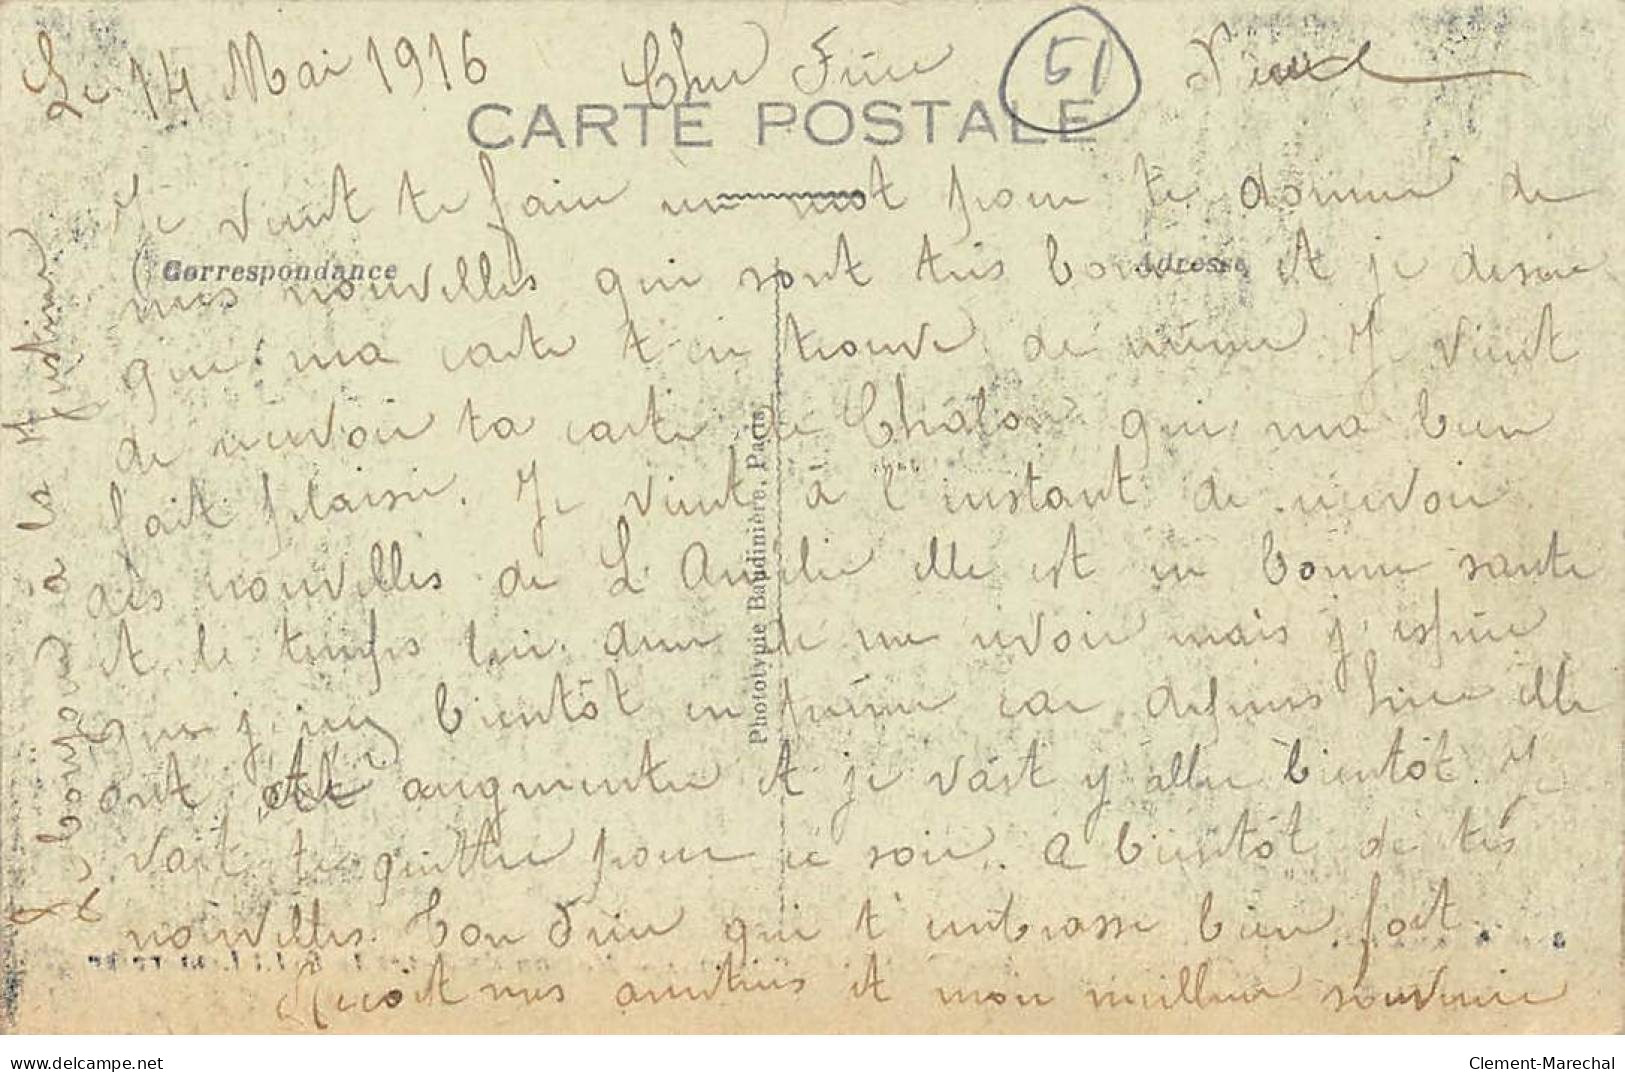 Le 14 Mai 1916 Cher Frère
51
CARTE POSTALE
Je vient te faire un mot pour te donner de
Correspondance
Adresse
mes nouvelles qui sont très bonne et je desire
que ma carte t en trouve de même. Je vient
de recevoir ta carte de Chalon qui ma bien
fait plaisir. Je vient à l'instant de recevoir
des nouvelles de L. Amelie elle est en bonne sante
et le temps lui dure de me revoir mais j espère
que j irer bientôt en perme car depuis hier elle
ont été augmenter et je vait y aller bientôt. Je
vait te quitter pour ce soir. A bientôt de tes
nouvelles. Ton Frère qui t'embrasse bien fort.
Recoit mes amitiés et mon meilleur souvenir
bonjour à la Justine
Phototypie Baudinière, Paris
www.delcampe.net
Clement-Marechal